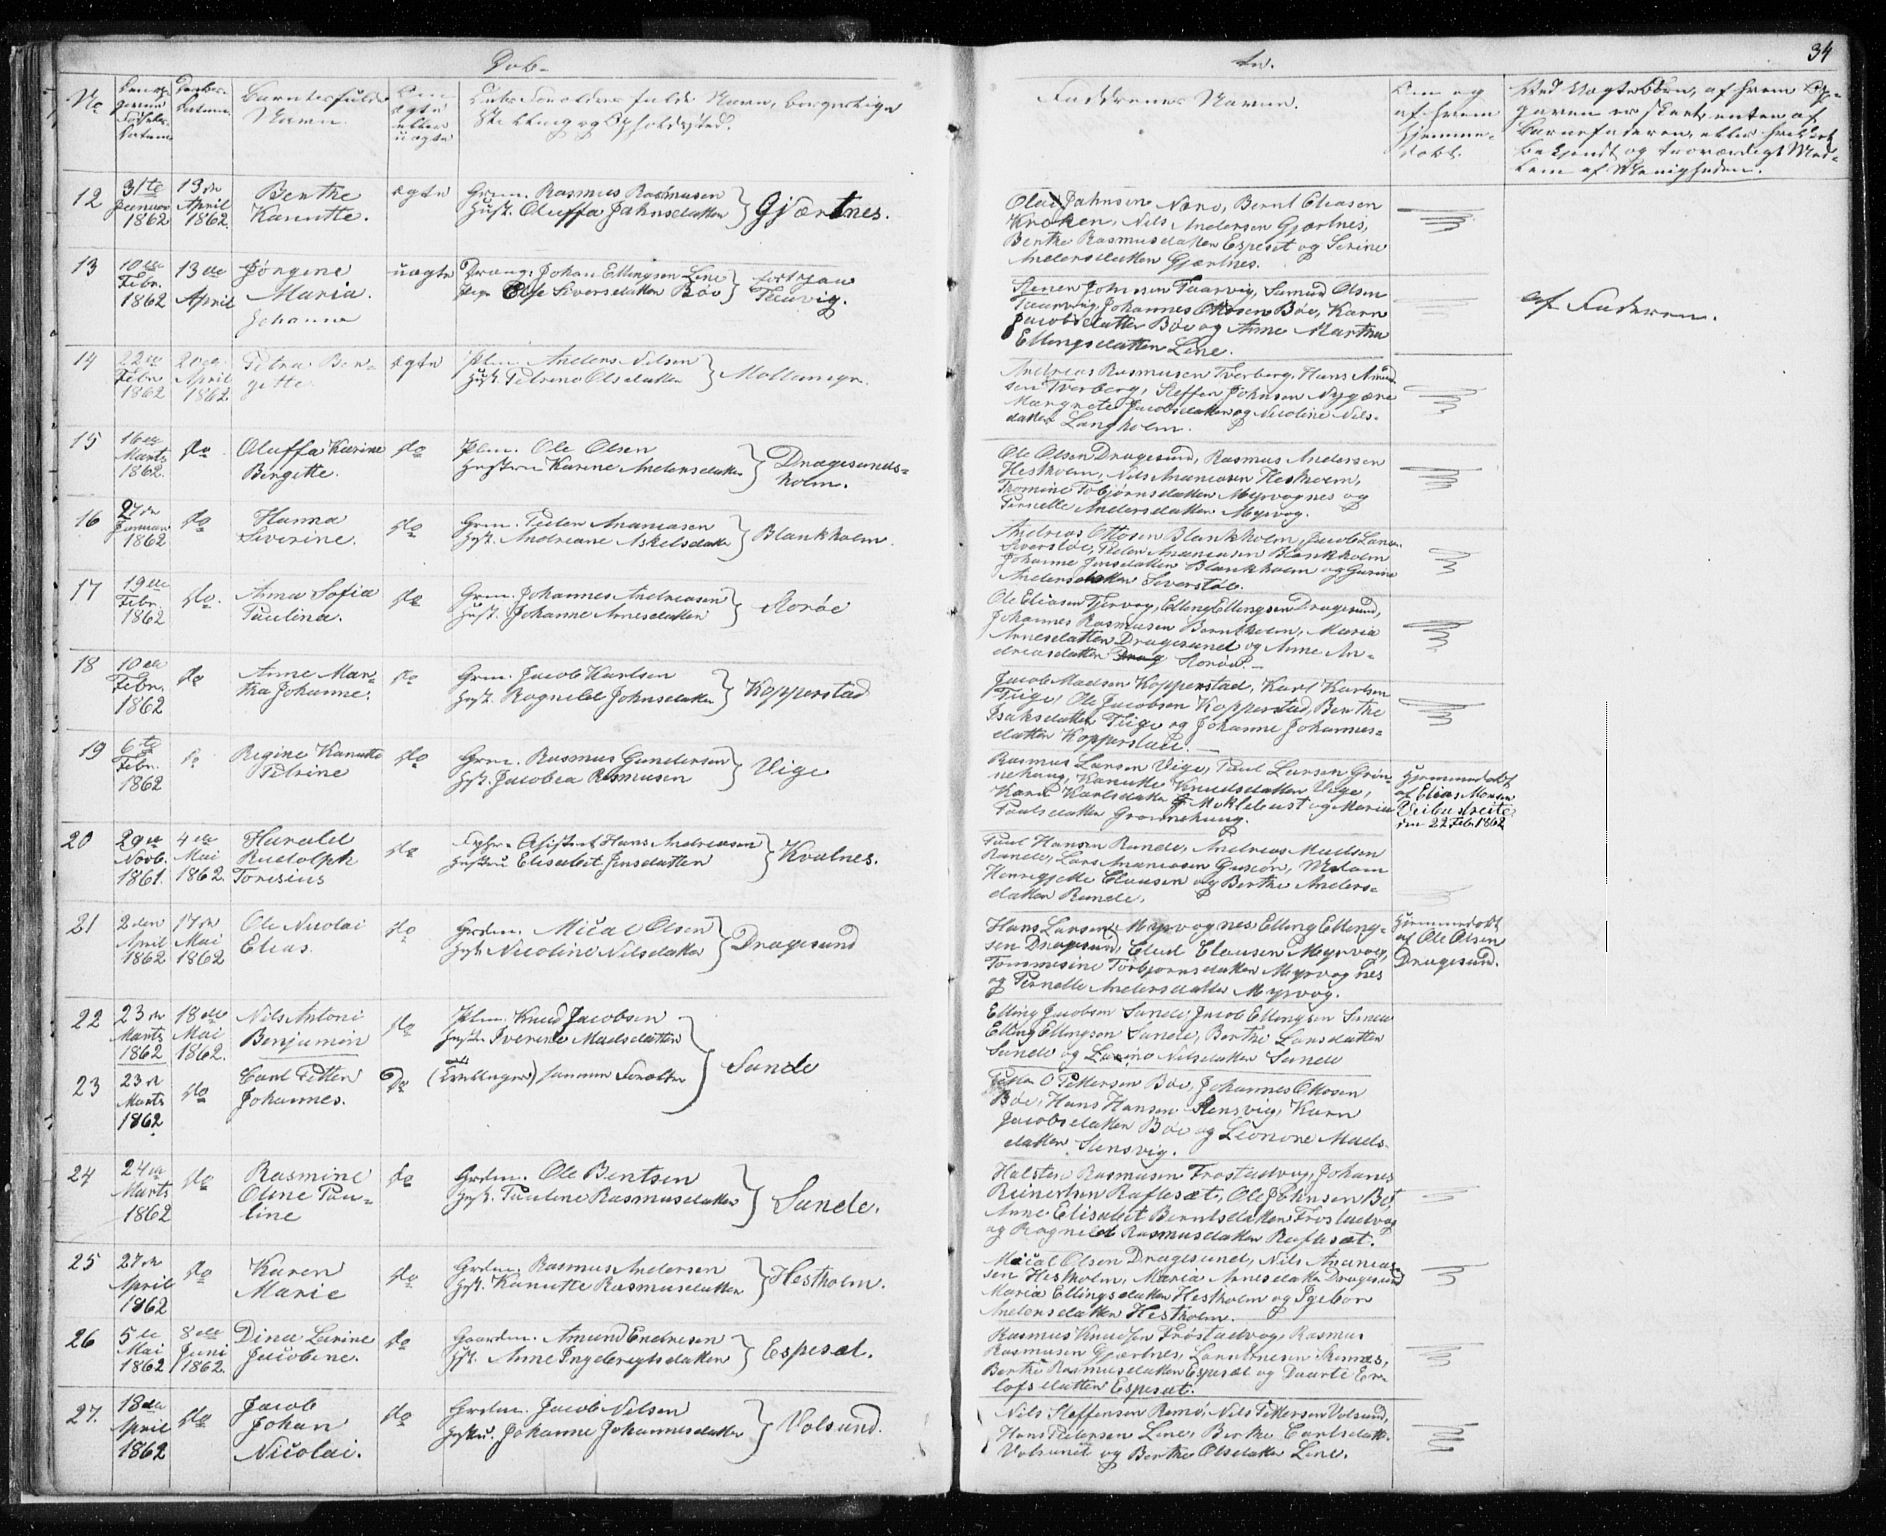 34
Døb-
te.
No
Barnets fulde
Navn.
Faddrenes Navne.
12
31te
Januar
1862
13de
April
1862.
Benthe
Kanutte.
ægte
Grm. Rasmus Rasmusen
Hust. Oluffa Jahnsdatter
Gjærtnes.
Olai Jahnsen Nærø, Bernt Eliasen
Kroken, Nils Andersen Gjærtnes,
Benthe Rasmusdatter Espeset og Serine
Andersdatter Gjærtnes.
13
10de
Febr.
1862
13de
April
Jørgine
Maria
Johanna
uægte
Dreng: Johan Ellingsen Line
Pige Else Siversdatter Bøe
Taarvig.
Stener Johnsen Taarvig, Samund Olsen
Taarvig, Johannes Ottosen Bøe, Karn
Jacobsdatter Bøe og Anne Martha
Ellingsdatter Line.
af Faderen.
14
22de
Febr.
1862
20de
April
1862
Petra Ber-
gitte.
ægte
Plm. Anders Nilsen
Hust. Petrine Olsdatter
Andreas Rasmusen Tverberg, Hans Amund-
sen Tverberg, Steffen Johnsen Nygære
Margrete Jacobsdatter og Nicoline Nils-
datter Langholm.
15
16de
Marts
1862.
do
Oluffa Karine
Bergitte.
do
Plm. Ole Olsen
Hustru Karine Andersdatter
Dragesunds-
holm.
Ole Olsen Dragesund, Rasmus Andersen
Hestholm, Nils Ananiasen Hestholm,
Thomine Tobjørnsdatter Myrvognes og
Pernelle Andersdatter Myrvog.
16
27de
Januar
1862
do
Hanna
Severine.
do
Grm. Peder Ananiasen
Hust. Andreane Askelsdatter
Blankholm.
Andreas Ottosen Blankholm, Jacob Larsen
Sverstøe, Peder Ananiasen Blankholm
Johanne Jensdatter Blankholm og Gurine
Andersdatter Severstøe.
17
19de
Febr.
1862
do.
Anna Sofia
Paulina.
do
Grm. Johannes Andreasen
Hust. Johanne Arnesdatter
Storøe
Ole Eliasen Tjervog, Elling Ellingsen Dragesund,
Johannes Rasmusen Berntholm, Maria
Arnesdatter Dragesund og Anne An-
dreasdatter Drag Storøe.
18
10de
Febr.
1862
do
Anne Mar-
tha Johanne.
do
Grm. Jacob Karlsen
Hust. Ragnild Johnsdatter
Kopperstad
Jacob Madsen Kopperstad, Karl Karlsen
Teige, Ole Jacobsen Kopperstad, Benthe
Isaksdatter Teige og Johanne Johannes-
datter Kopperstad.
19
6te
Febr.
1862
do
Regine Kanutte
Petrine
do
Grm. Rasmus Gundersen
Hust. Jacobea Rasmusen
Vige
Rasmus Larsen Vige, Paul Larsen Grøn-
nehaug, Kanutte Knudsdatter Vige,
Karn Karlsdatter Myklebust og Maria
Paulsdatter Grønnehaug.
Hjemmedøbt
af Elias Monsen
Veibustreite
den 22 Feb. 1862
20
29de
Novb.
1861.
4de
Mai
1862.
Harald
Rudolph
Toresius
do
Hans Andreasen
Hustru Elisabet Jensdatter
Kvalnes.
Paul Hansen Runde, Andreas Madsen
Runde, Lars Ananiasen Gurskøn, Madam
Henrigjette Clausen og Berthe Anders-
datter Runde.
21
2den
April
1862
17de
Mai
1862
Ole Nicolai
Elias.
do
Grdm. Mical Olsen
Hust. Nicoline Nilsdatter
Dragesund
Hans Larsen Myrvognes Elling Elling-
sen Dragesund, Elud Clausen Myrvog,
Tommesine Torbjørnsdatter Myrvognes
og Pernelle Andersdatter Myrvog.
Hjemmedøbt
af Ole Olsen
Dragesund.
22
23de
Marts
1862
18de
Mai
1862.
Nils Antoni
Benjamin
do
Plm. Knud Jacobsen
Hust. Iverine Madsdatter
Sande
Elling Jacobsen Sande, Jacob Ellingsen Sande
Elling Ellingsen Sande, Berthe Larsdatter
Sande og Larine Nilsdatter Sande
23
23de
Marts
1862
do
Carl Petter
Johannes.
do
(Tvillinger) samme Forældre
Petter O Pettersen Bøe, Johannes Ottosen
Bøe, Hans Hansen Stensvig, Karn
Jacobsdatter Bøe og Leonore Mads-
datter Stensvig.
24
24de
Marts
1862
do
Rasmine
Oline Pau-
line
do
Grdm. Ole Bentsen
Hust. Pauline Rasmusdatter
Sande.
Halsten Rasmusen Frøstadvog, Johanes
Reinertsen Raftesæt, Ole Johnsen Bø,
Anne Elisabet Berntsdatter Frøstadvog
og Ragnild Rasmusdatter Raftesæt.
25
27de
April
1862
do
Karen
Marie
do
Grdm. Rasmus Andersen
Hust. Kanutte Rasmusdatter
Hestholm.
Mical Olsen Dragesund, Nils Ananias-
sen Hestholm, Maria Arnesdatter Dragesund
Maria Ellingsdatter Hestholm og Igebor
Andersdatter Hestholm.
26
5de
Mai
1862
8de
Juni
1862.
Dina Larine
Jacobine.
do
Gaardm. Amund Endresen
Hust. Anne Ingebregtsdatter
Espesæt.
Rasmus Knudsen Frøstadvog, Rasmus
Rasmusen Gjærtnes,
Berthe Rasmusdatter Espesæt og Daarte Er-
lofsdatter Espesæt.
27.
18de
April
1862
do
Jacob
Johan
Nicolai.
do
Grdm. Jacob Nilsen
Hustru. Johanne Johannesdatter
Volsund.
Nils Steffensen Remø, Nils Pettersen Volsund,
Hans Pedersen Line, Berthe Carlsdatt.
Volsund og Berthe Olsdatter Line.